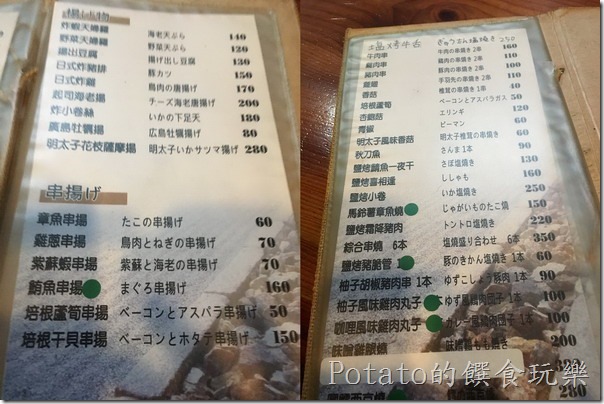 揚げ物
炸蝦天婦羅 海老天ぷら 140
野菜天婦羅 野菜天ぷら 120
揚出豆腐 揚げ出し豆腐 130
日式炸豬排 豚カツ 150
日式炸雞 鳥肉の唐揚げ 170
起司海老揚 チーズ海老唐揚げ 200
炸小卷絲 いかの下足天 180
廣島牡犡揚 広島牡蠣揚げ 80
明太子花枝薩摩揚 明太子いかサツマ揚げ 280
串揚げ
章魚串揚 たこの串揚げ 60
雞蔥串揚 鳥肉とねぎの串揚げ 70
紫蘇蝦串揚 紫蘇と海老の串揚げ 70
鮪魚串揚 まぐろ串揚げ 160
培根蘆筍串揚 ベーコンとアスパラ串揚げ 50
培根干貝串揚 ベーコンとホタテ串揚げ 150
塩烤牛舌 ぎゅうたん塩焼き 250
牛肉串 牛肉の串焼き 2串 160
雞肉串 鶏肉の串焼き 2串 110
豬肉串 豚肉の串焼き 2串 110
香菇 椎茸の串焼き 1串
培根蘆筍 ベーコンとアスパラガス 50
杏鮑菇 エリンギ 120
青椒 ピーマン 60
明太子風味香菇 明太子椎茸の串焼き
秋刀魚 さんま 1本 90
鹽烤鯖魚一夜干 さば塩焼き 130
鹽烤喜相逢 ししゃも 160
鹽烤小卷 いか塩焼き 250
馬鈴薯章魚燒 じゃがいものたこ焼 150
鹽烤霜降豬肉 トントロ塩焼き 220
綜合串燒 6本 塩焼盛り合わせ 6本 350
鹽烤豬脆管 1本 豚のきかん塩焼き 1本
柚子胡椒豬肉串 1本 ゆずこしょう豚肉 1本 90
柚子風味雞肉丸子 1本 ゆず風鶏肉団子 1本 100
咖哩風味雞肉丸子 1本 カレー風鶏肉団子 1本 100
Potato的饌食玩樂